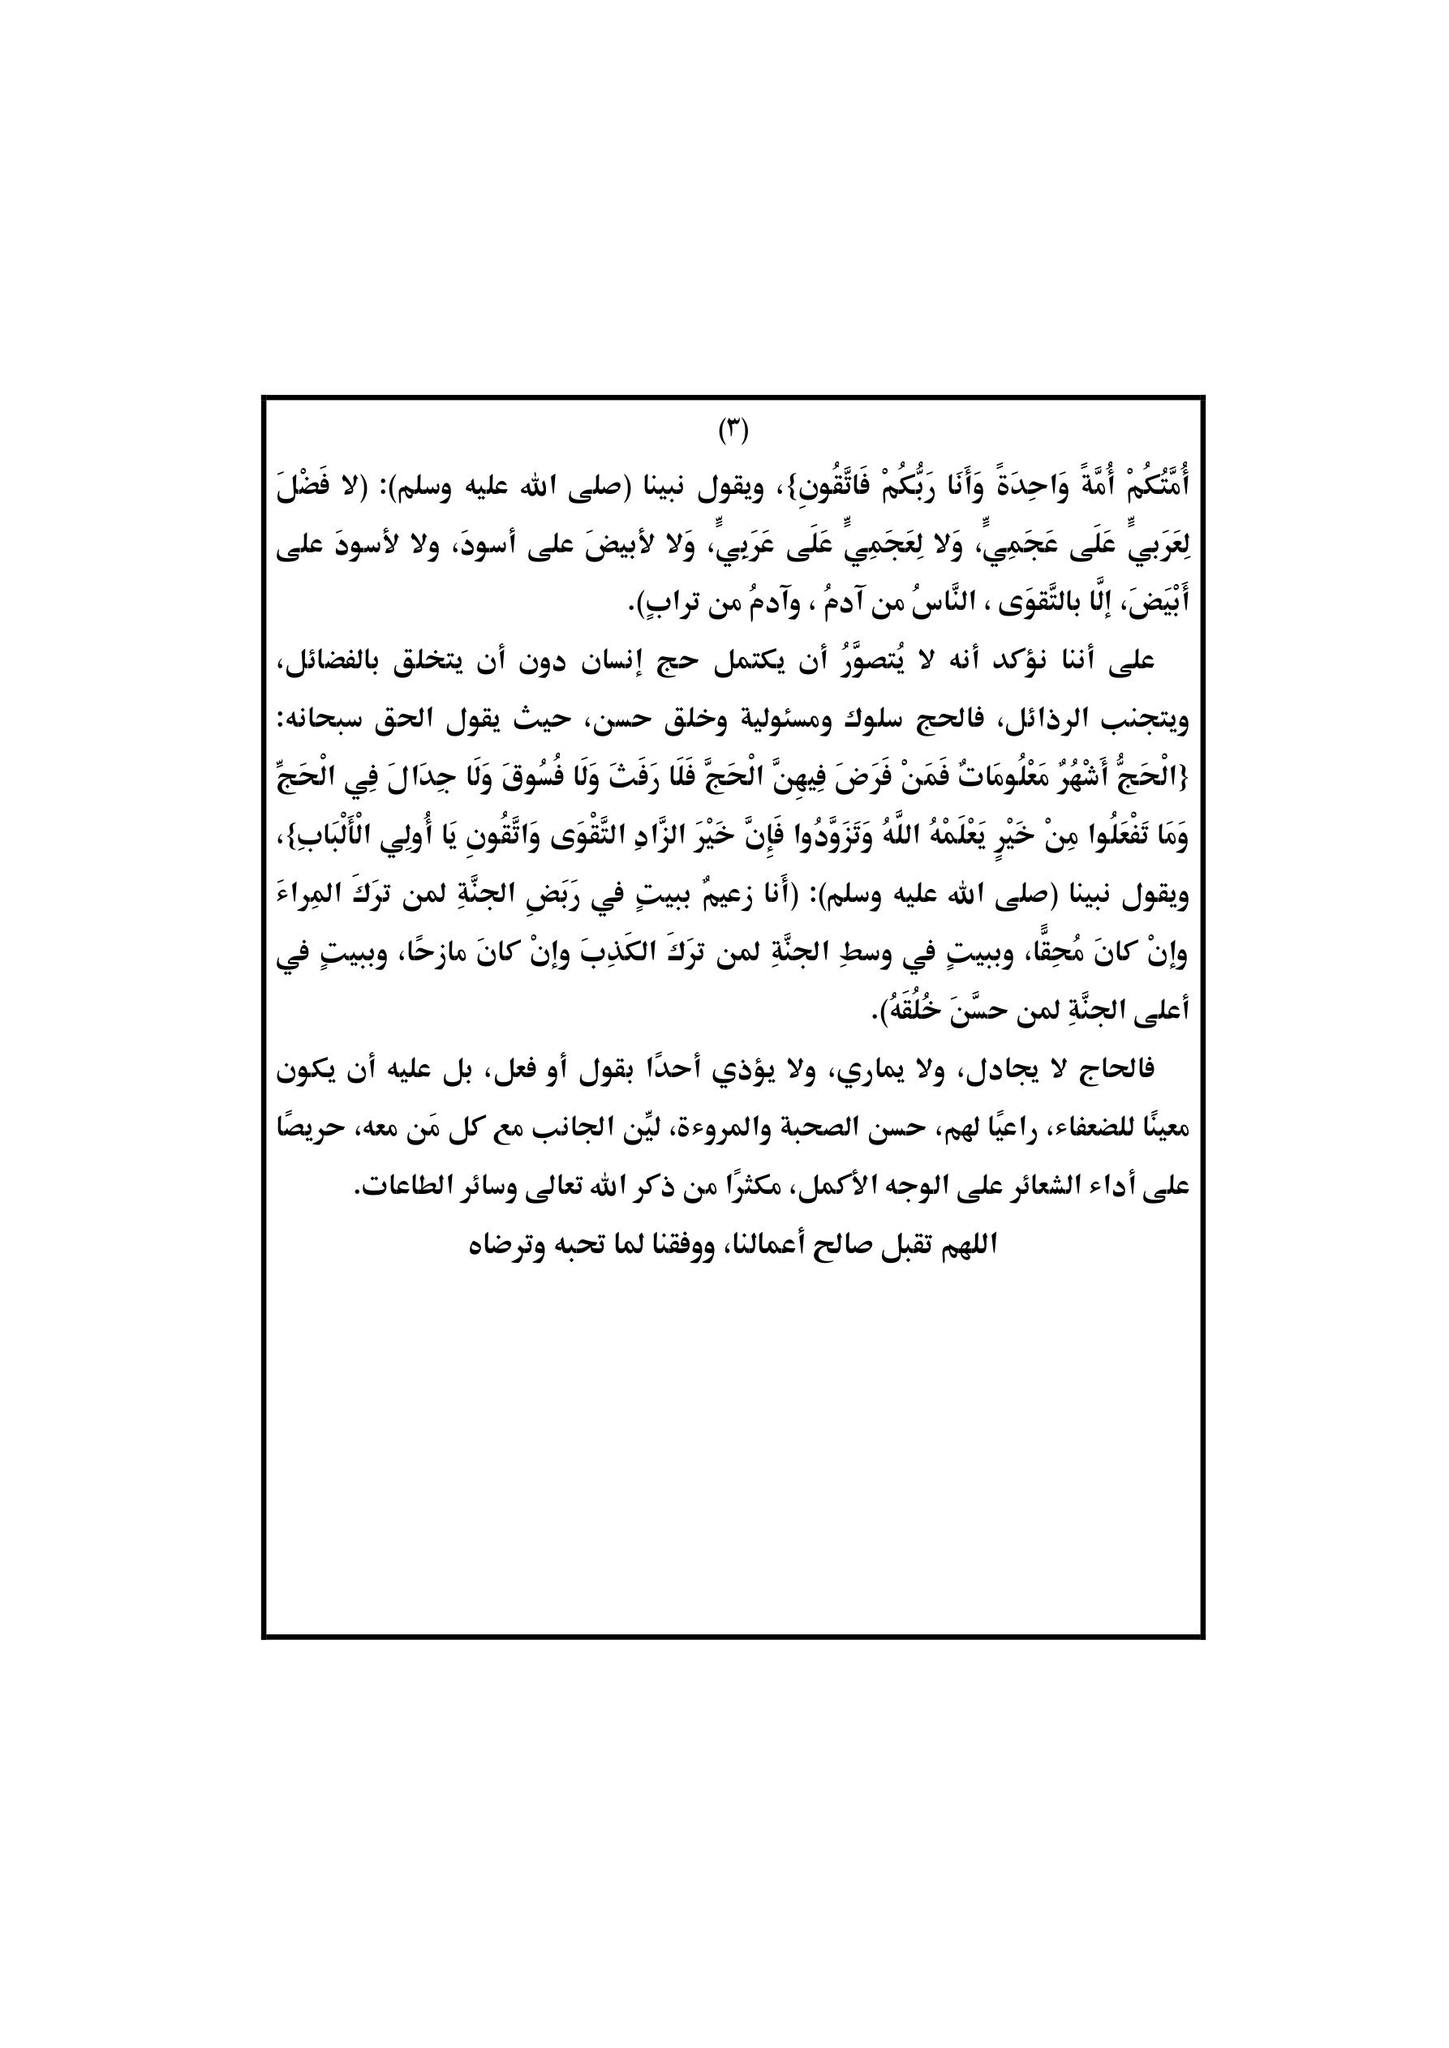 (٣)
أُمَّتُكُمْ أُمَّةً وَاحِدَةً وَأَنَا رَبُّكُمْ فَاتَّقُونِ}، ويقول نبينا (صلى الله عليه وسلم): (لا فَضْلَ
لِعَرَبيٍّ عَلَى عَجَمِيٍّ، وَلا لِعَجَمِيٍّ عَلَى عَرَبِيٍّ، وَلا لأبيضَ على أسودَ، ولا لأسودَ على
أَبْيَضَ، إلَّا بالتَّقوَى ، النَّاسُ من آدمُ ، وآدمُ من ترابٍ).
على أننا نؤكد أنه لا يُتصوَّرُ أن يكتمل حج إنسان دون أن يتخلق بالفضائل،
ويتجنب الرذائل، فالحج سلوك ومسئولية وخلق حسن، حيث يقول الحق سبحانه:
{الْحَجُّ أَشْهُرٌ مَعْلُومَاتٌ فَمَنْ فَرَضَ فِيهِنَّ الْحَجَّ فَلَا رَفَثَ وَلَا فُسُوقَ وَلَا جِدَالَ فِي الْحَجِّ
وَمَا تَفْعَلُوا مِنْ خَيْرٍ يَعْلَمْهُ اللَّهُ وَتَزَوَّدُوا فَإِنَّ خَيْرَ الزَّادِ التَّقْوَى وَاتَّقُونِ يَا أُولِي الْأَلْبَابِ}،
ويقول نبينا (صلى الله عليه وسلم): (أَنا زعيمٌ ببيتٍ في رَبَضِ الجنَّةِ لمن ترَكَ المِراءَ
وإنْ كانَ مُحِقًّا، وببيتٍ في وسطِ الجنَّةِ لمن ترَكَ الكَذِبَ وإنْ كانَ مازحًا، وببيتٍ في
أعلى الجنَّةِ لمن حسَّنَ خُلُقَهُ).
فالحاج لا يجادل، ولا يماري، ولا يؤذي أحدًا بقول أو فعل، بل عليه أن يكون
معينًا للضعفاء، راعيًا لهم، حسن الصحبة والمروءة، ليِّن الجانب مع كل مَن معه، حريصًا
على أداء الشعائر على الوجه الأكمل، مكثرًا من ذكر الله تعالى وسائر الطاعات.
اللهم تقبل صالح أعمالنا، ووفقنا لما تحبه وترضاه